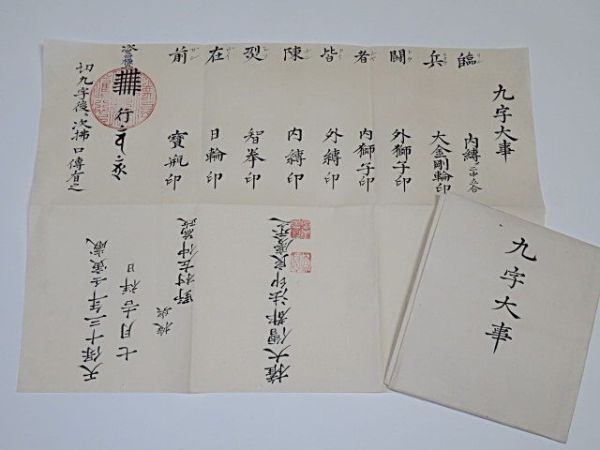 九字大事
臨 内縛
兵 大金剛輪印
闘 外獅子印
者 内獅子印
皆 外縛印
陳 内縛印
智拳印
在 日輪印
前 寳瓶印
行
切九字後、次拂口傳有之
天保十三年壬寅歳
七月吉祥日
野村左仲
権大僧都法印良
九字大事